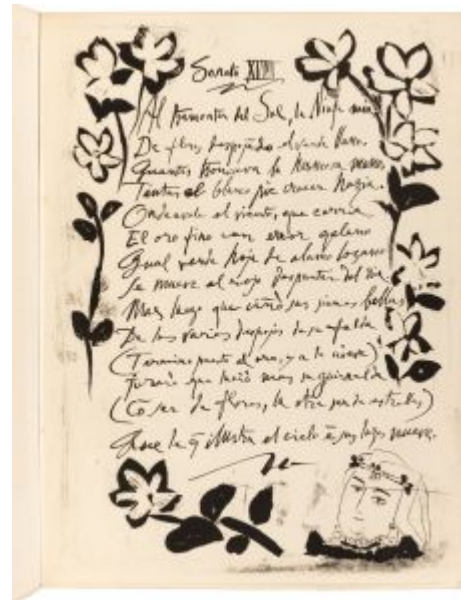 Soneto
Al tramontar del Sol, la Ninfa mia
De flores despojando el verde llano
Quantas troncava la hermosa mano
Tantas el blanco pie crecer hazia.
Ondeavale el viento, que corria
El oro fino con error galano
Qual verde hoja de alamo lozano
Se mueve al rojo despuntar del dia
Mas luego que ciñó sus bellas
De los varios despojos de su falda
(Termino puesto al oro, y a la nieve)
Juraré que lució mas su guirnalda
(Co ser de flores, la otra ser de estrellas)
Que la q̃ ilustra el cielo en luzes nueve.